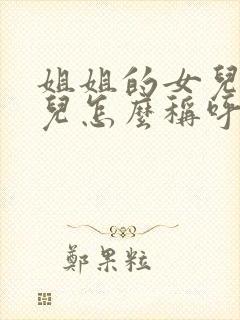 姐姐的女兒
兒怎麼稱呼
鄭果粒